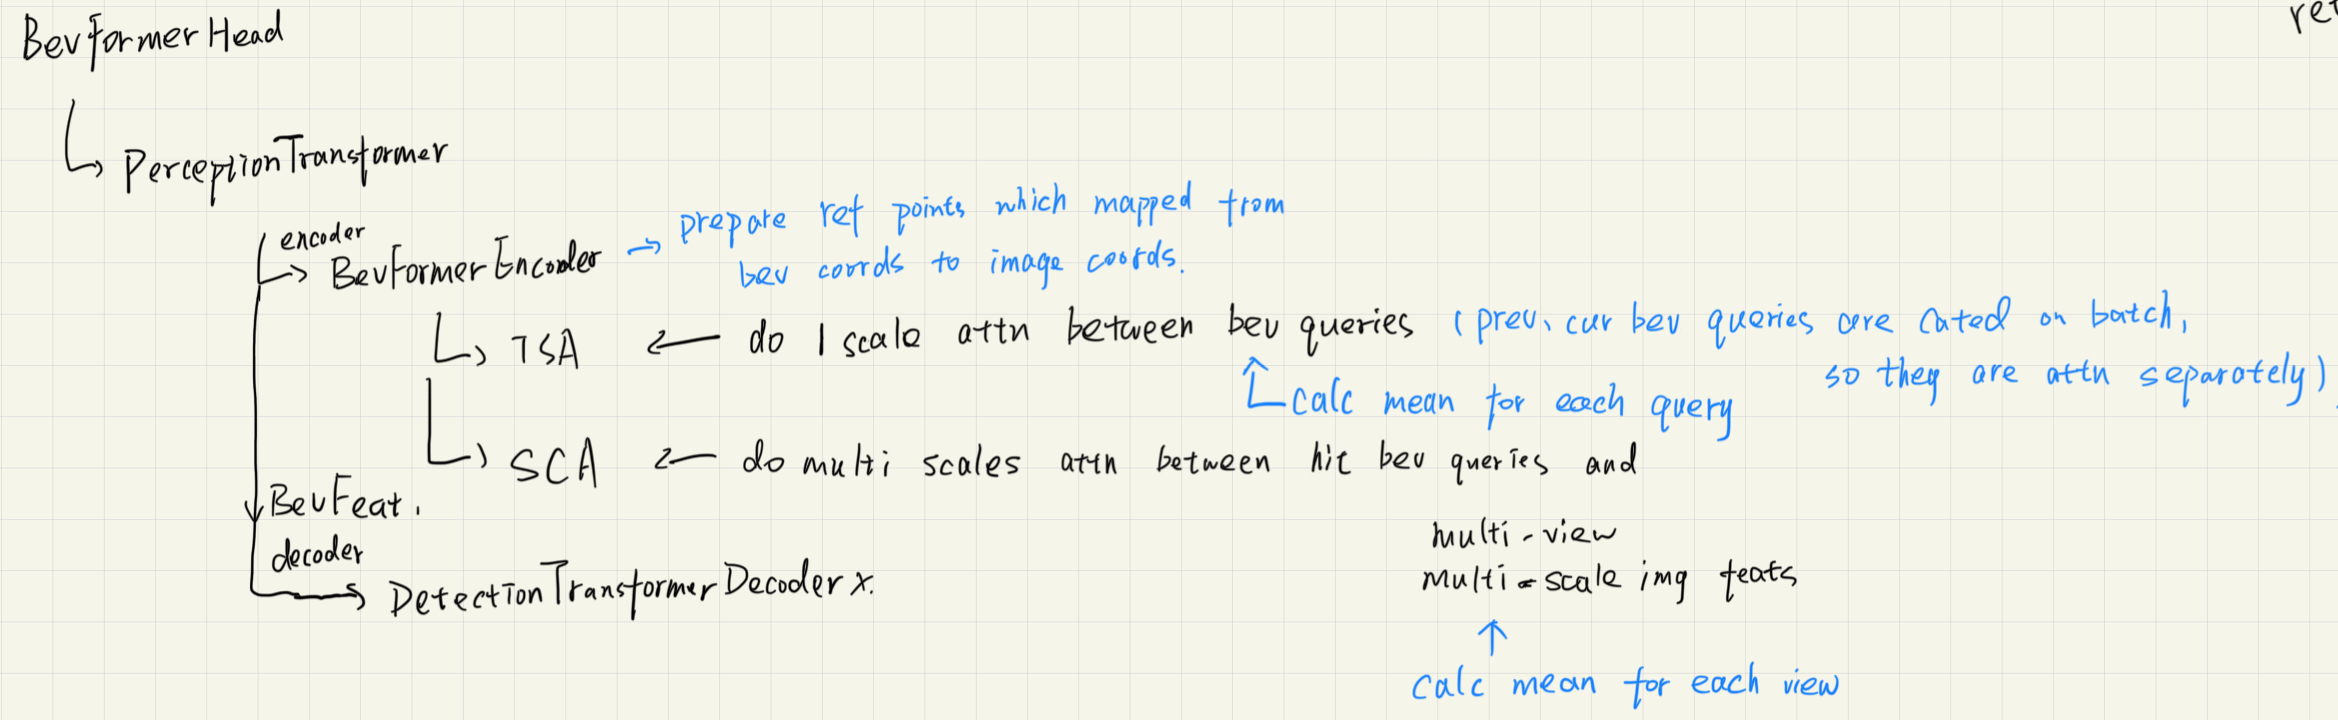 BevFormerHead
ret
PerceptionTransformer
encoder
BevFormerEncoder → prepare ref points which mapped from
bev coords to image coords.
TSA ← do 1 scale attn between bev queries (prev, cur bev queries are cated on batch,
so they are attn separately)
calc mean for each query
SCA ← do multi scales attn between hit bev queries and
BevFeat.
multi-view
decoder
multi-scale img feats
DetectionTransformerDecoder x.
calc mean for each view